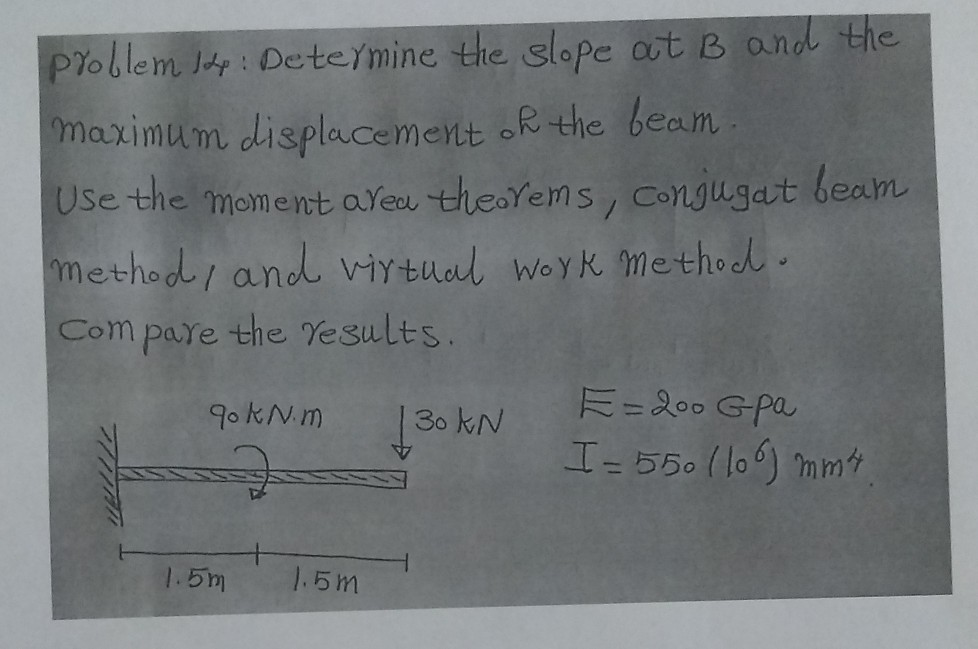 Problem 14: Determine the slope at B and the
maximum displacement of the beam.
Use the moment area theorems, conjugat beam
method, and virtual work method.
Compare the results.
90 kN.m
30 kN
E = 200 GPa
I = 550 (10⁶) mm⁴.
1.5m
1.5m